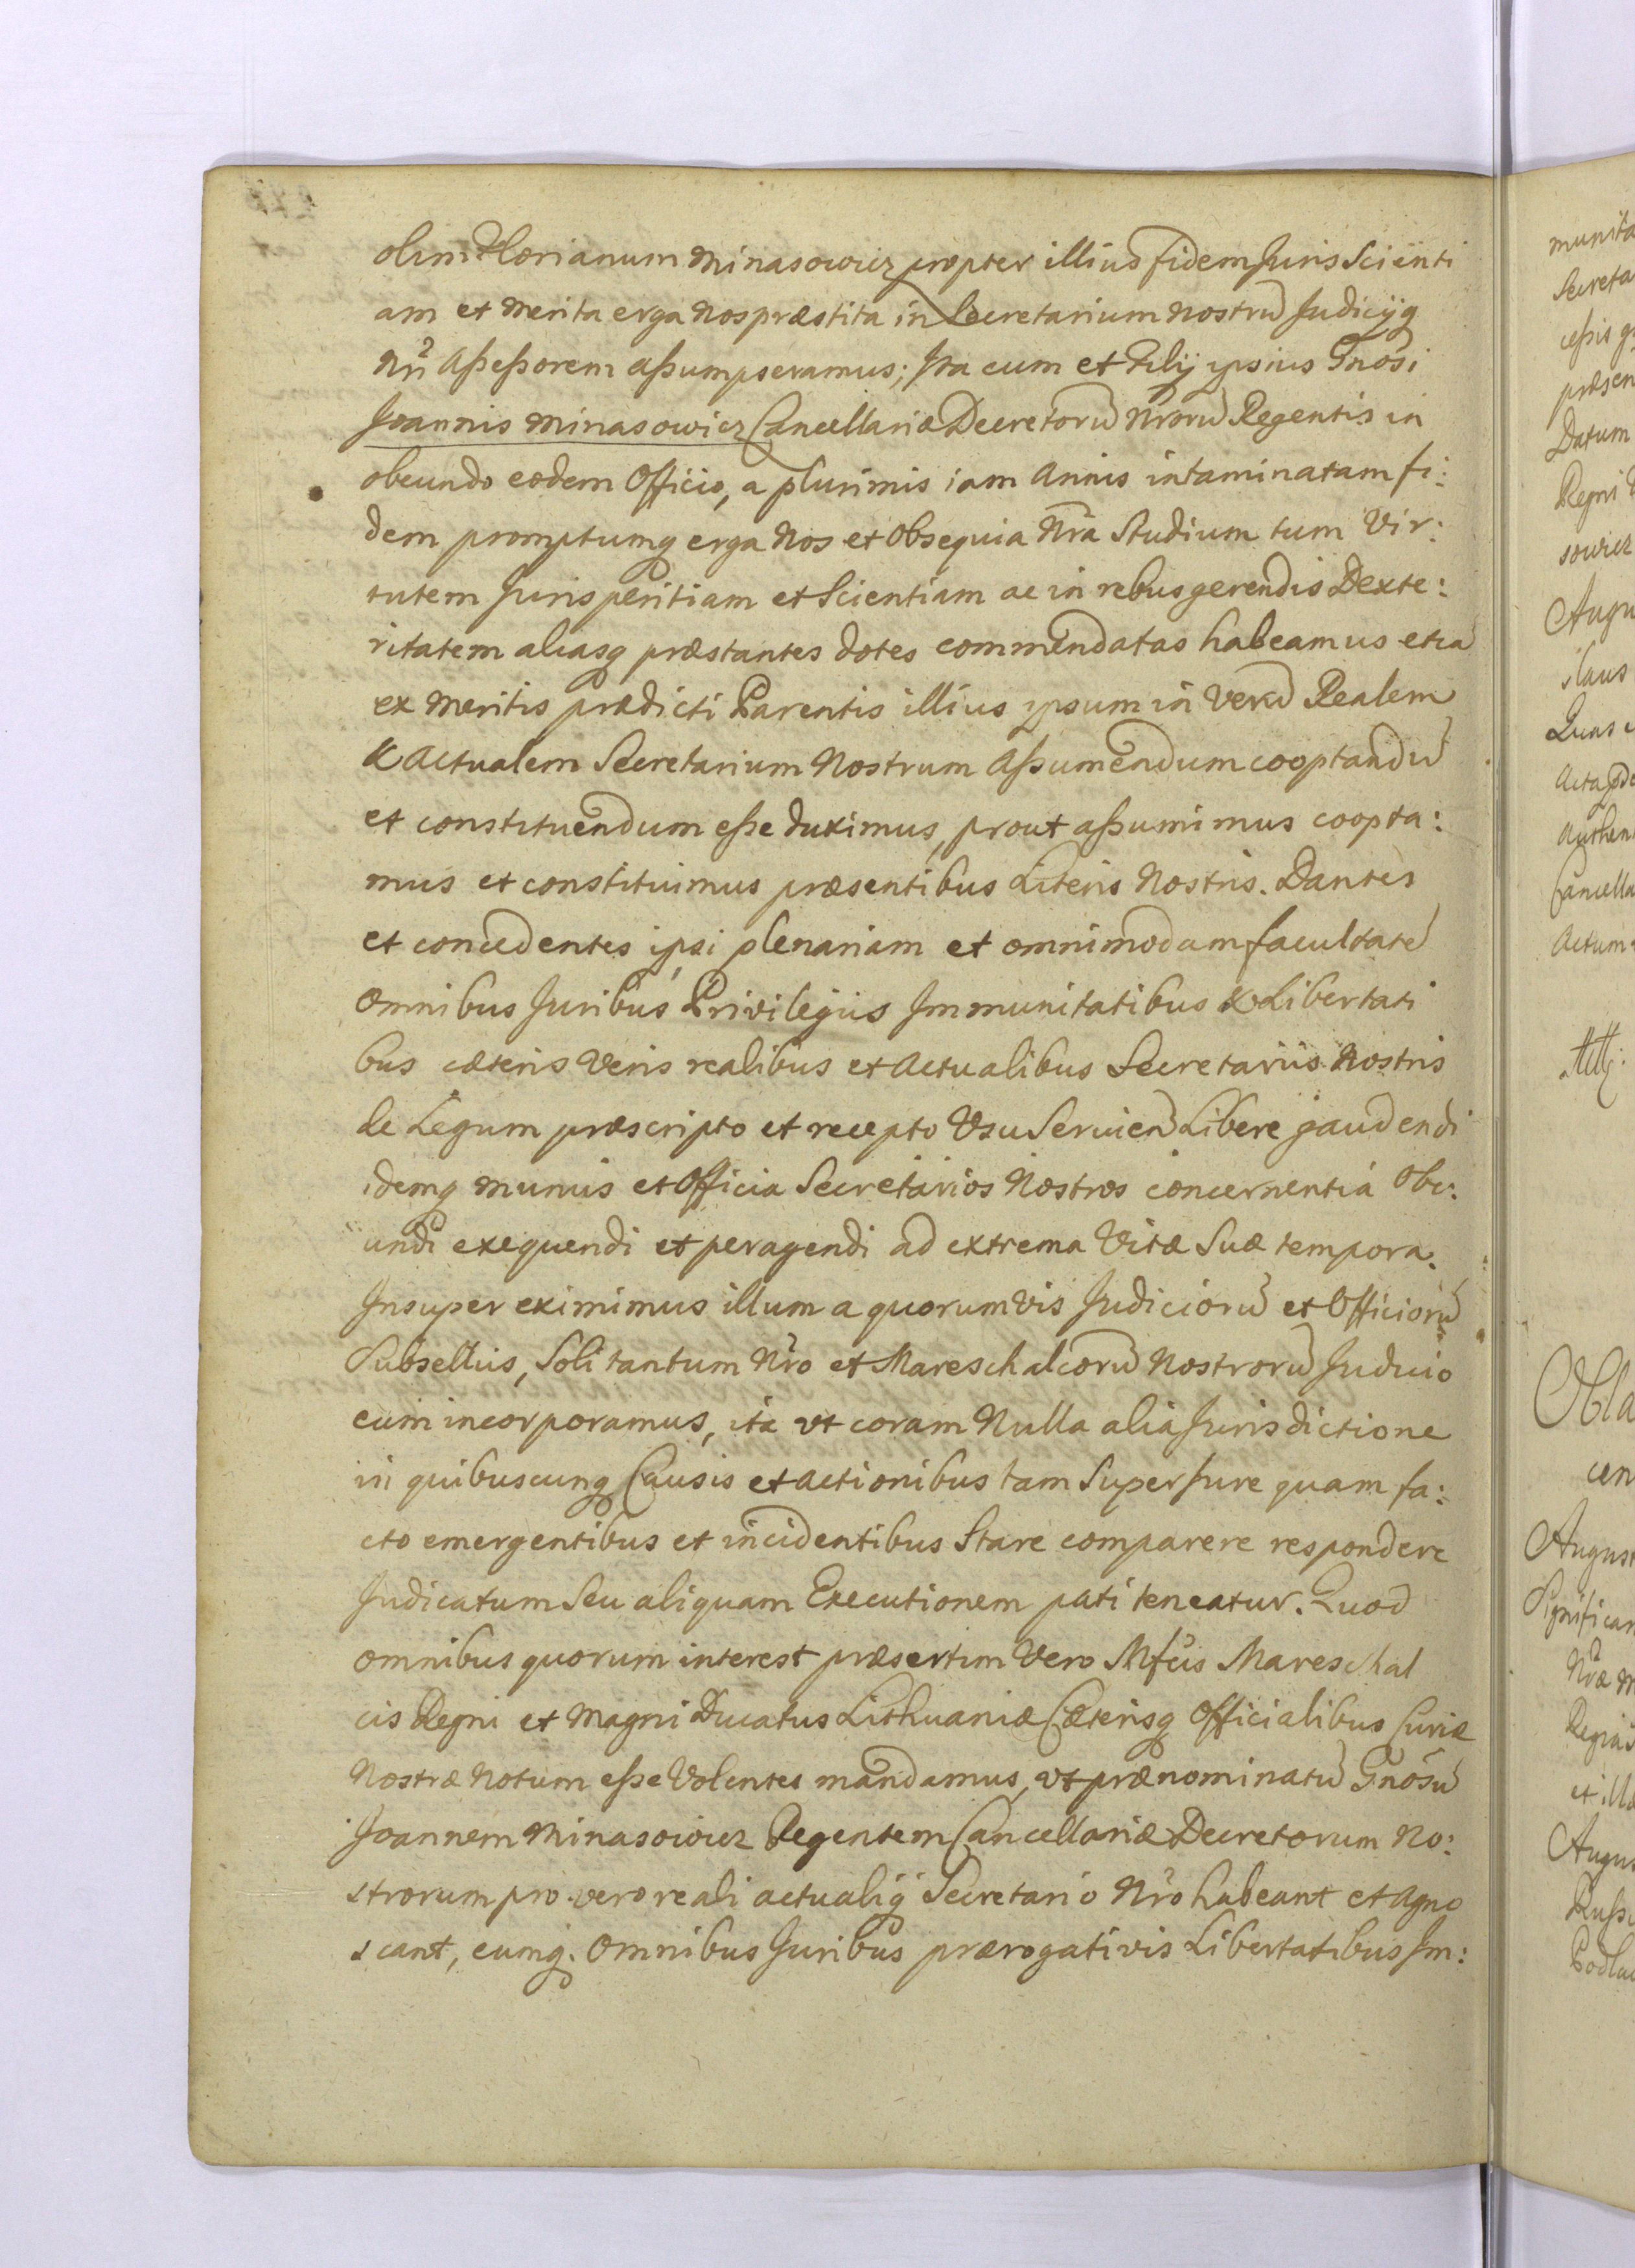 olim Florianum Minasowicz propter illius fidem Juris Scienti
am et Merita erga Nos præstita in Secretarium Nostrũ Judicijq
Nri Aßeßorem aßumpseramus; Ita cum et Filij ipsius Gnosi
Joannis Minasowicz Cancellariæ Decretorũ Nrorũ Regentis in
obeundo eodem Officio, a plurimis iam Annis intaminatam fi:
dem promptumq erga Nos et Obsequia Nra Studium tum Vir:
tutem Juris peritiam et Scientiam ac in rebus gerendis Dexte:
ritatem aliasq præstantes dotes commendatas habeamus etiã
ex Meritis prædicti Parentis illius ipsum in Verũ Realem
& Actualem Secretarium Nostrum Aßumendum cooptandũ
et constituendum eße duximus, prout aßumimus coopta:
mus et constituimus præsentibus Literis Nostris. Dantes
et concedentes ipsi plenariam et omnimodam facultatẽ
Omnibus Juribus Privilegiis Immunitatibus & Libertati
bus cæteris Veris realibus et Actualibus Secretariis Nostris
de Legum præscripto et recepto Usu Servien Libere gaudendi
idemq munus et Officia Secretarios Nostros concernentia Obe:
undi exequendi et peragendi ad extrema Vitæ Suæ tempora.
Insuper eximimus illum a quorumvis Judiciorũ et Officiorũ
Subselliis, Soli tantum Nro et Mareschalcorũ Nostrorũ Judicio
eum incorporamus, ita vt coram Nulla alia Jurisdictione
in quibuscunq Causis et Actionibus tam Super Jure quam fa:
cto emergentibus et incidentibus Stare comparere respondere
Judicatum Seu aliquam Executionem pati teneatur. Quod
omnibus quorum interest præsertim Vero Mfcis Mareschal
cis Regni et Magni Ducatus Lithuaniæ Cæterisq Officialibus Curiæ
Nostræ Notum eße Volentes mandamus, vt prænominatũ Gnosũ
Joannem Minasowicz Regentem Cancellariæ Decretorum No:
strorum pro vero reali actualiq Secretario Nro habeant et Agno
scant, eumq. Omnibus Juribus prærogativis Libertatibus Im:
munita
Secreta
præsen
Datum
Regni
sowicz
Augu
slaus
Acta
Authen
Cancella
Actum
Obla
cen
August
Significam
Regia
et illæ
Augus
Podla